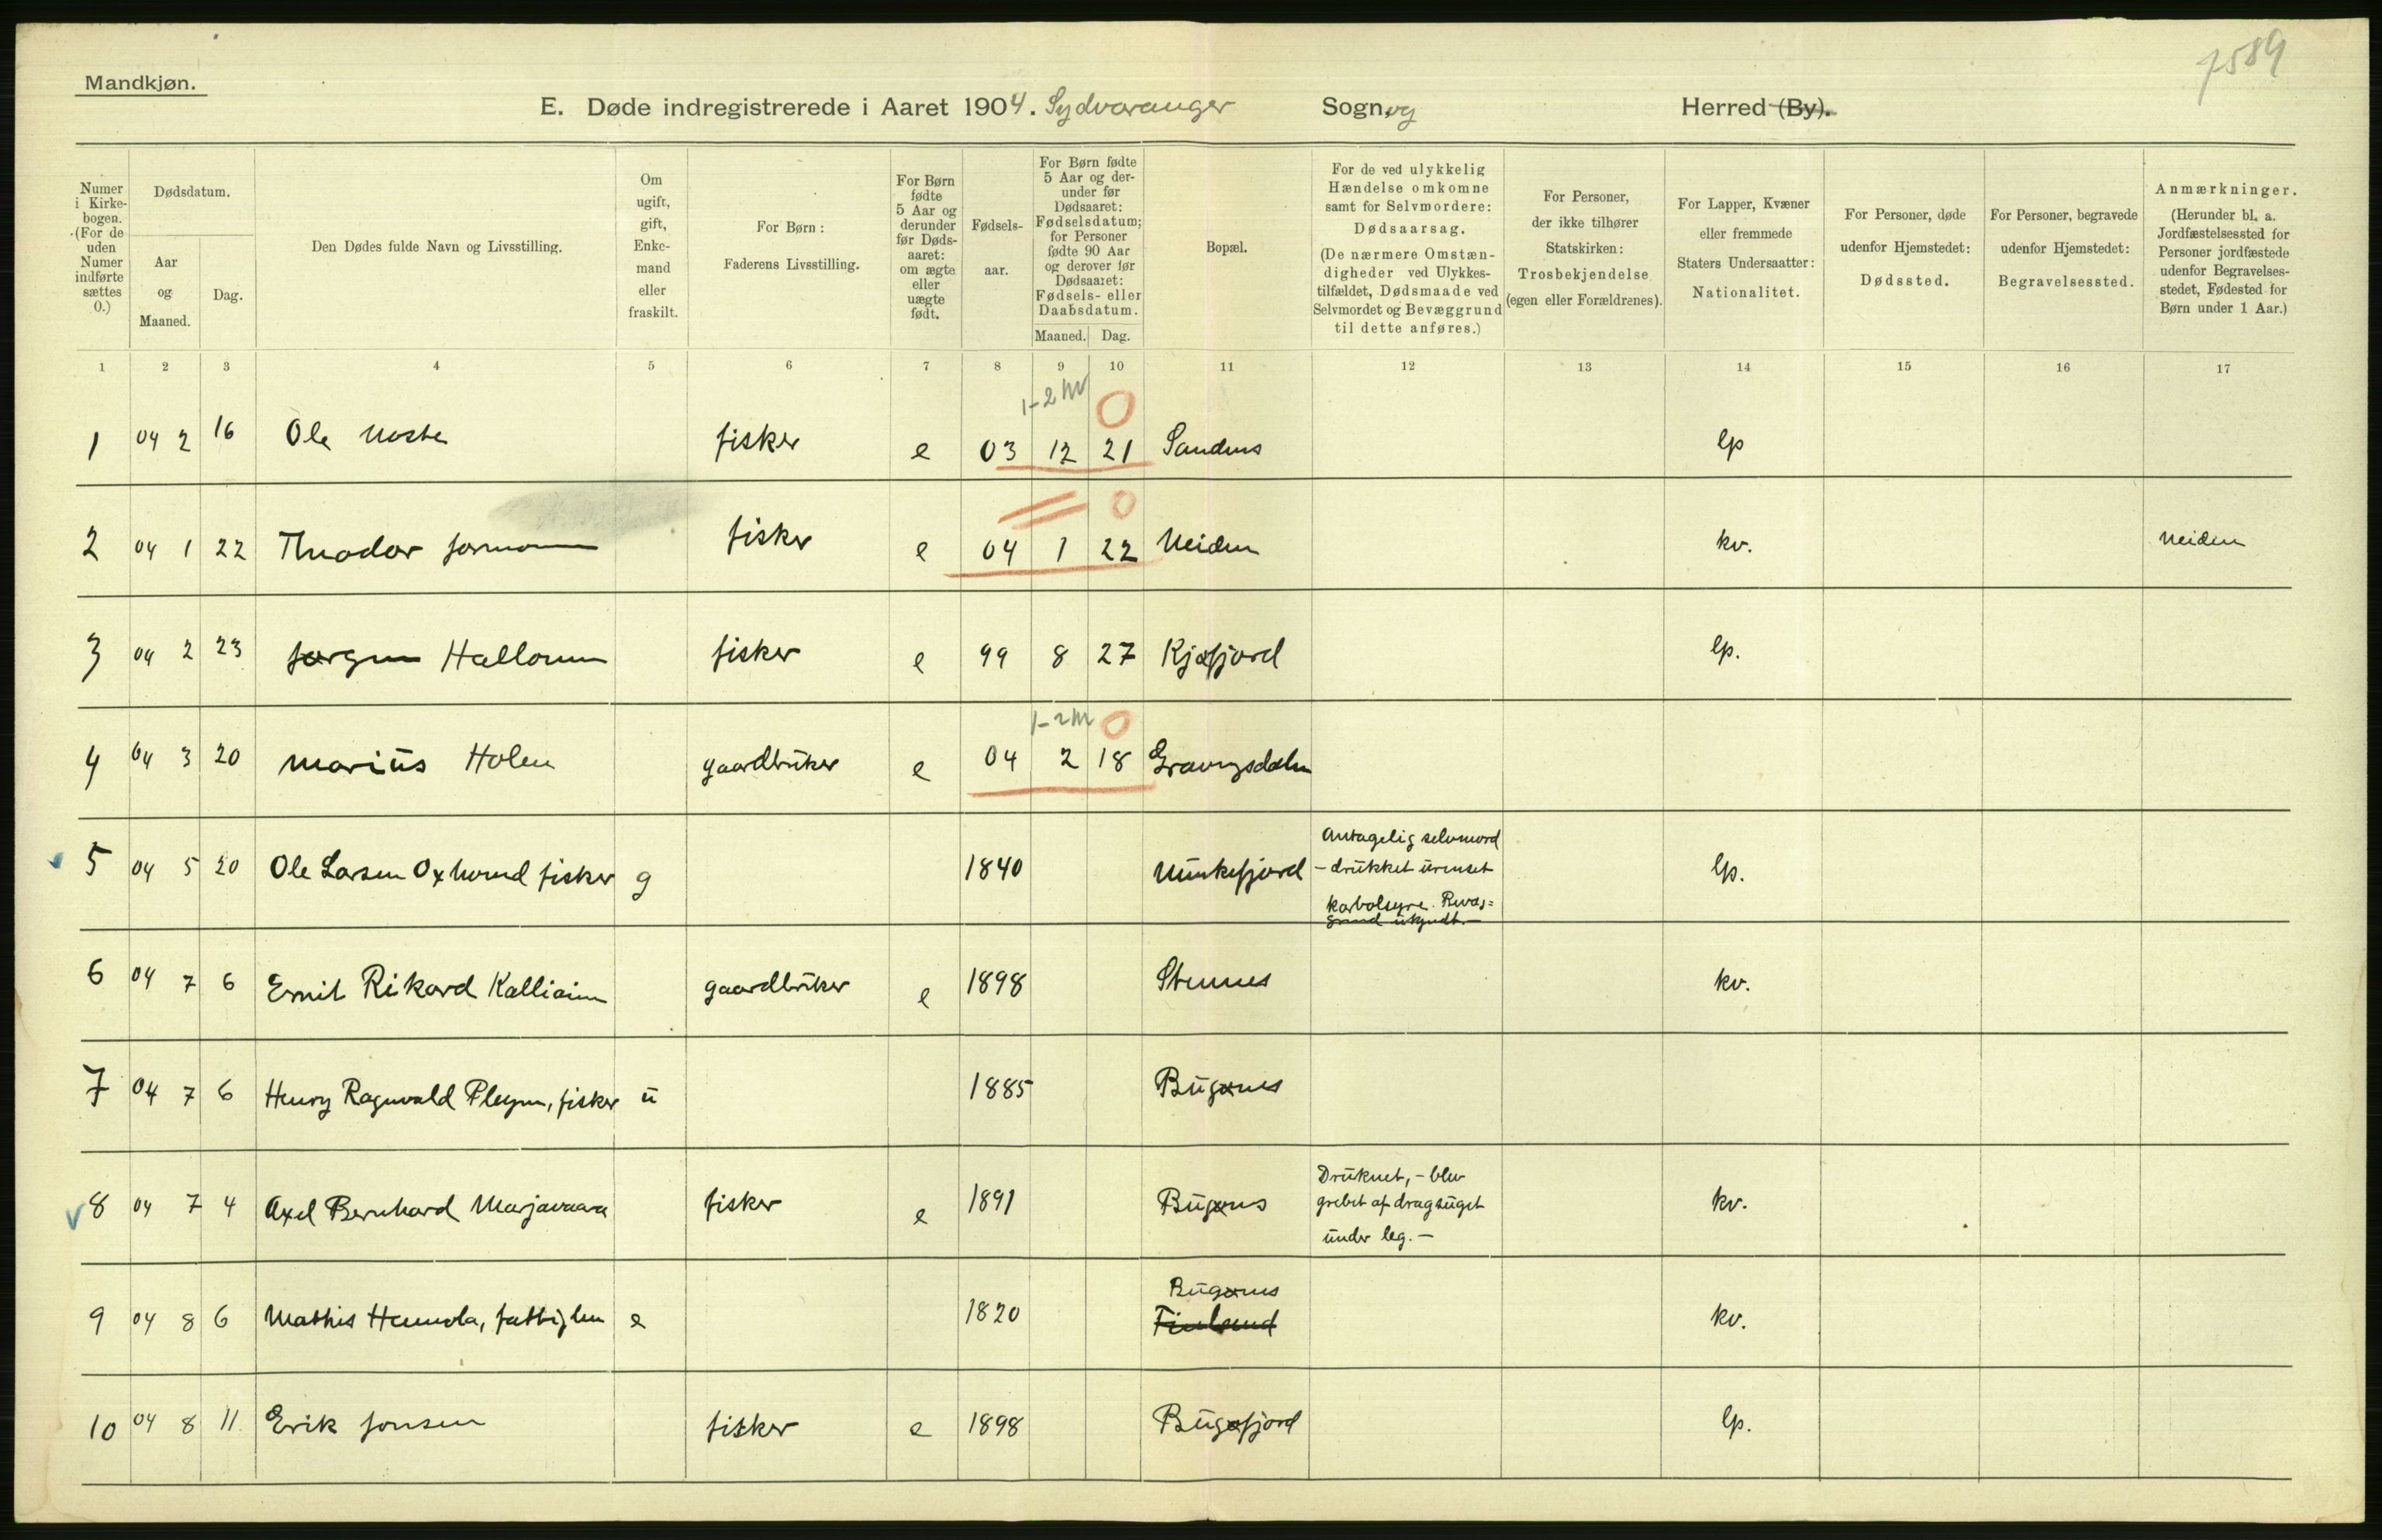 7589
Mandkjøn.
E. Døde indregistrerede i Aaret 1904. Sydvaranger Sogn og Herred (By).
Numer i Kirkebogen. (For de uden Numer indførte sættes 0.)
Dødsdatum.
Aar og Maaned.
Dag.
Den Dødes fulde Navn og Livsstilling.
Om ugift, gift, Enkemand eller fraskilt.
For Børn: Faderens Livsstilling.
For Børn fødte 5 Aar og derunder før Dødsaaret: om ægte eller uægte født.
Fødselsaar.
For Børn fødte 5 Aar og derunder før Dødsaaret: Fødselsdatum; for Personer fødte 90 Aar og derover før Dødsaaret: Fødsels- eller Daabsdatum.
Maaned. Dag.
Bopæl.
For de ved ulykkelig Hændelse omkomne samt for Selvmordere: Dødsaarsag. (De nærmere Omstændigheder ved Ulykkestilfældet, Dødsmaade ved Selvmordet og Bevæggrund til dette anføres.)
For Personer, der ikke tilhører Statskirken: Trosbekjendelse (egen eller Forældrenes).
For Lapper, Kvæner eller fremmede Staters Undersaatter: Nationalitet.
For Personer, døde udenfor Hjemstedet: Dødssted.
For Personer, begravede udenfor Hjemstedet: Begravelsessted.
Anmærkninger. (Herunder bl. a. Jordfæstelsessted for Personer jordfæstede udenfor Begravelsesstedet, Fødested for Børn under 1 Aar.)
1 2 3 4 5 6 7 8 9 10 11 12 13 14 15 16 17
1-2 M 0
1 04 2 16 Ole fisker e 03 12 21 Sandnes lp
0
2 04 1 22 Theodor fisker e 04 1 22 Neiden kv. Neiden
3 04 2 23 Jørgen Hallonen fisker e 99 8 27 Kjøfjord lp.
1-2 M 0
4 04 3 20 Marius Holen gaardbruker e 04 2 18
5 04 5 20 Ole Larsen Oxhorned fisker g 1840 Munkefjord Antagelig selvmord
– drukket urenset
karbolsyre. Bevæg=
grund ukjendt. –
lp.
6 04 7 6 Emil Rikard gaardbruker e 1898 kv.
7 04 7 6 Henry Ragnvald Pleym, fisker u 1885 Bugønes
8 04 7 4 Axel Bernhard Marjavaara fisker e 1891 Bugønes Druknet, – blev
grebet af dragsuget
under leg. –
kv.
9 04 8 6 Mathis fattiglem e 1820 Bugønes
kv.
10 04 8 11 Erik Jonsen fisker e 1898 Bugøfjord lp.